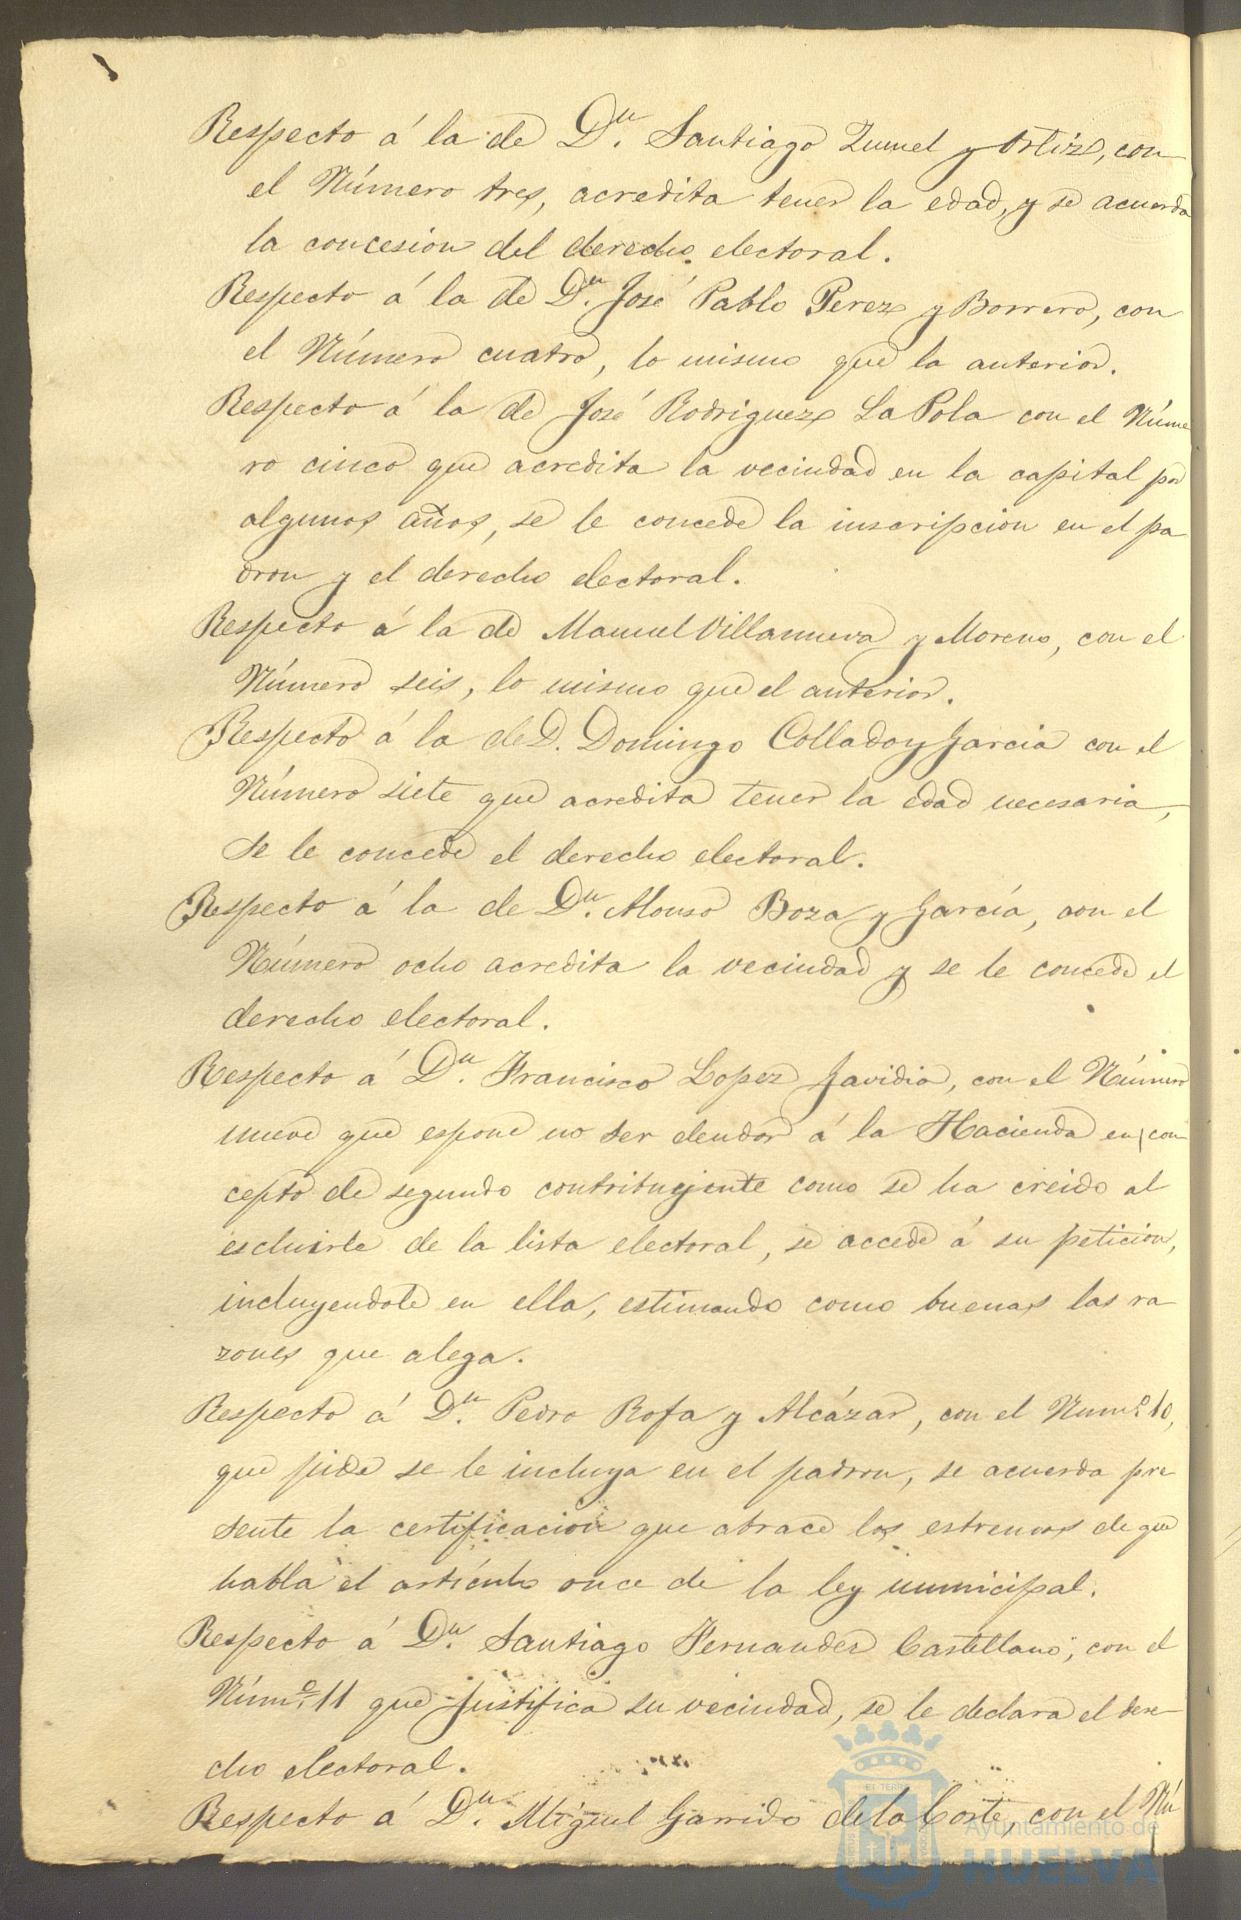 Respecto á la de Dn. Santiago Zumel y Ortiz, con
el Número tres, acredita tener la edad, y se acuerda
la concesion del derecho electoral.
Respecto á la de Dn. José Pablo Perez y Borrero, con
el Número cuatro, lo mismo que la anterior.
Respecto á la de José Rodriguez La Pola con el Núme
ro cinco que acredita la vecindad en la capital por
algunos años, se le concede la inscripcion en el pa
dron y el derecho electoral.
Respecto á la de Manuel Villanueva y Moreno, con el
Número seis, lo mismo que el anterior.
Respecto á la de D. Domingo Collado y Garcia con el
Número siete que acredita tener la edad necesaria,
se le concede el derecho electoral.
Respecto á la de Dn. Alonso Boza y García, con el
Número ocho acredita la vecindad y se le concede el
derecho electoral.
Respecto á Dn. Francisco Lopez Gavidia, con el Número
nueve que espone no ser deudor á la Hacienda en con
cepto de segundo contribuyente como se ha creido al
escluirle de la lista electoral, se accede á su peticion,
incluyendole en ella, estimando como buenas las ra
zones que alega.
Respecto á Dn. Pedro Rofa y Alcázar, con el Numo. 10,
que pide se le incluya en el padron, se acuerda pre
sente la certificacion que abrace los estremos de que
habla el artículo once de la ley municipal.
Respecto á Dn. Santiago Fernandez Castellano, con el
Númo. 11 que justifica su vecindad, se le declara el dere-
cho electoral.
Respecto á Dn. Miguel Garrido de la Corte, con el Nú
Ayuntamiento de
HUELVA